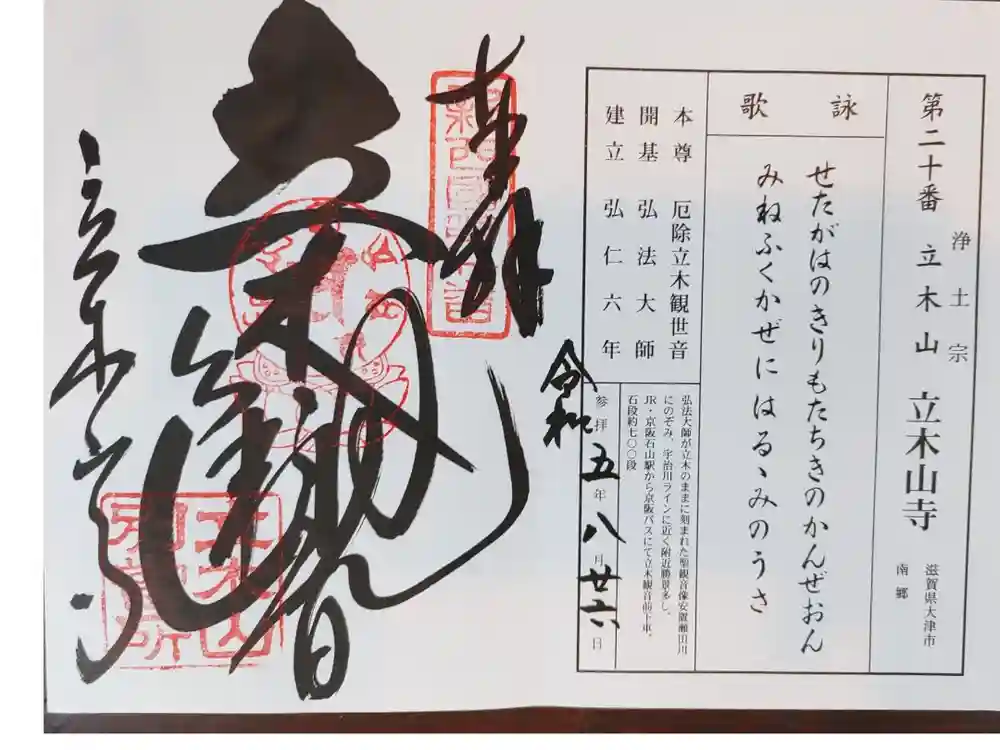 浄土宗
第二十番 立木山 立木山寺
滋賀県大津市
南郷
詠歌
せたがはのきりもたちきのかんぜおん
みねふくかぜにはるゝみのうさ
本尊 厄除立木観世音
開基 弘法大師
建立 弘仁六年
弘法大師が立木のままに刻まれた聖観音像安置瀬田川
にのぞみ、宇治川ラインに近く附近勝景多し。
JR・京阪石山駅から京阪バスにて立木観音前下車。
石段約七〇〇段
令和
参拝 五年 八月 廿六日
奉拝
立木観音
立木山